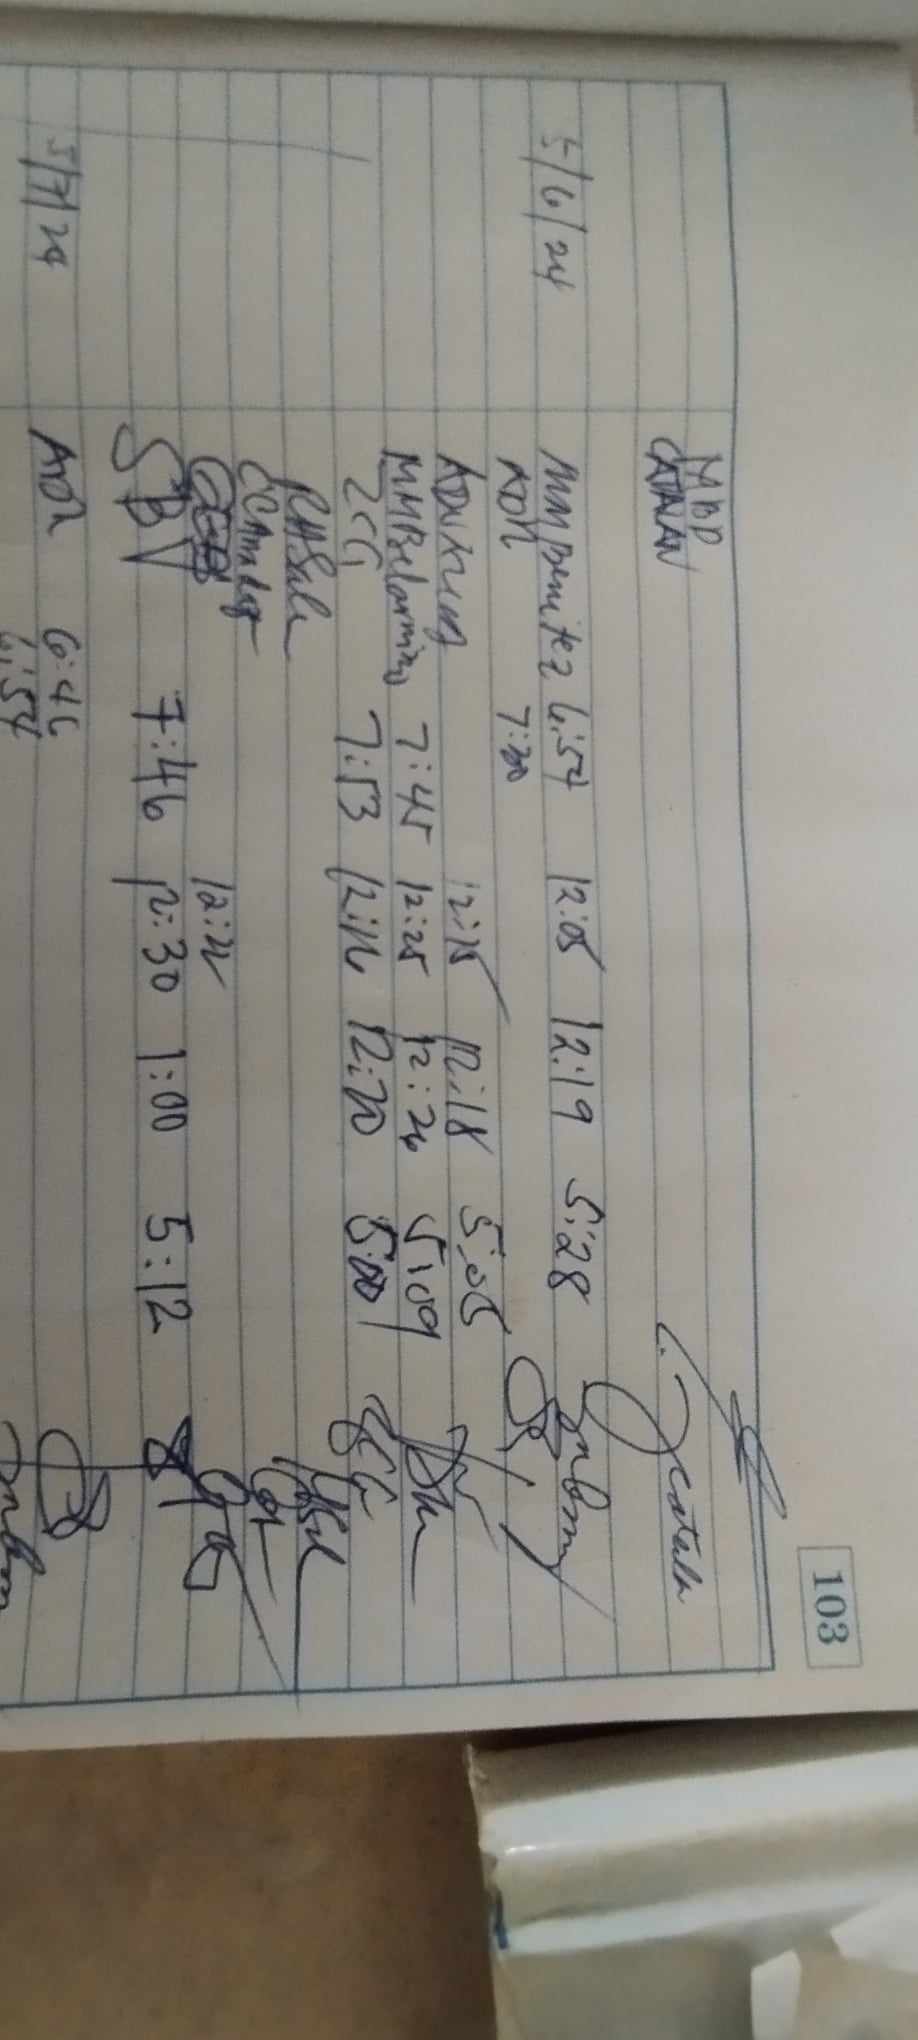 103
MBD
CATALAN
5/6/24 MMBenitez 6:54 12:05 12:19 5:28
ADR 7:30
12:15 12:18 5:05
MMBelarmino 7:45 12:25 12:26 5:09
ZCG 7:53 12:16 12:20 5:00
RHSule
12:22
SBV 7:46 12:30 1:00 5:12
5/7/24 ADR 6:46
6:54